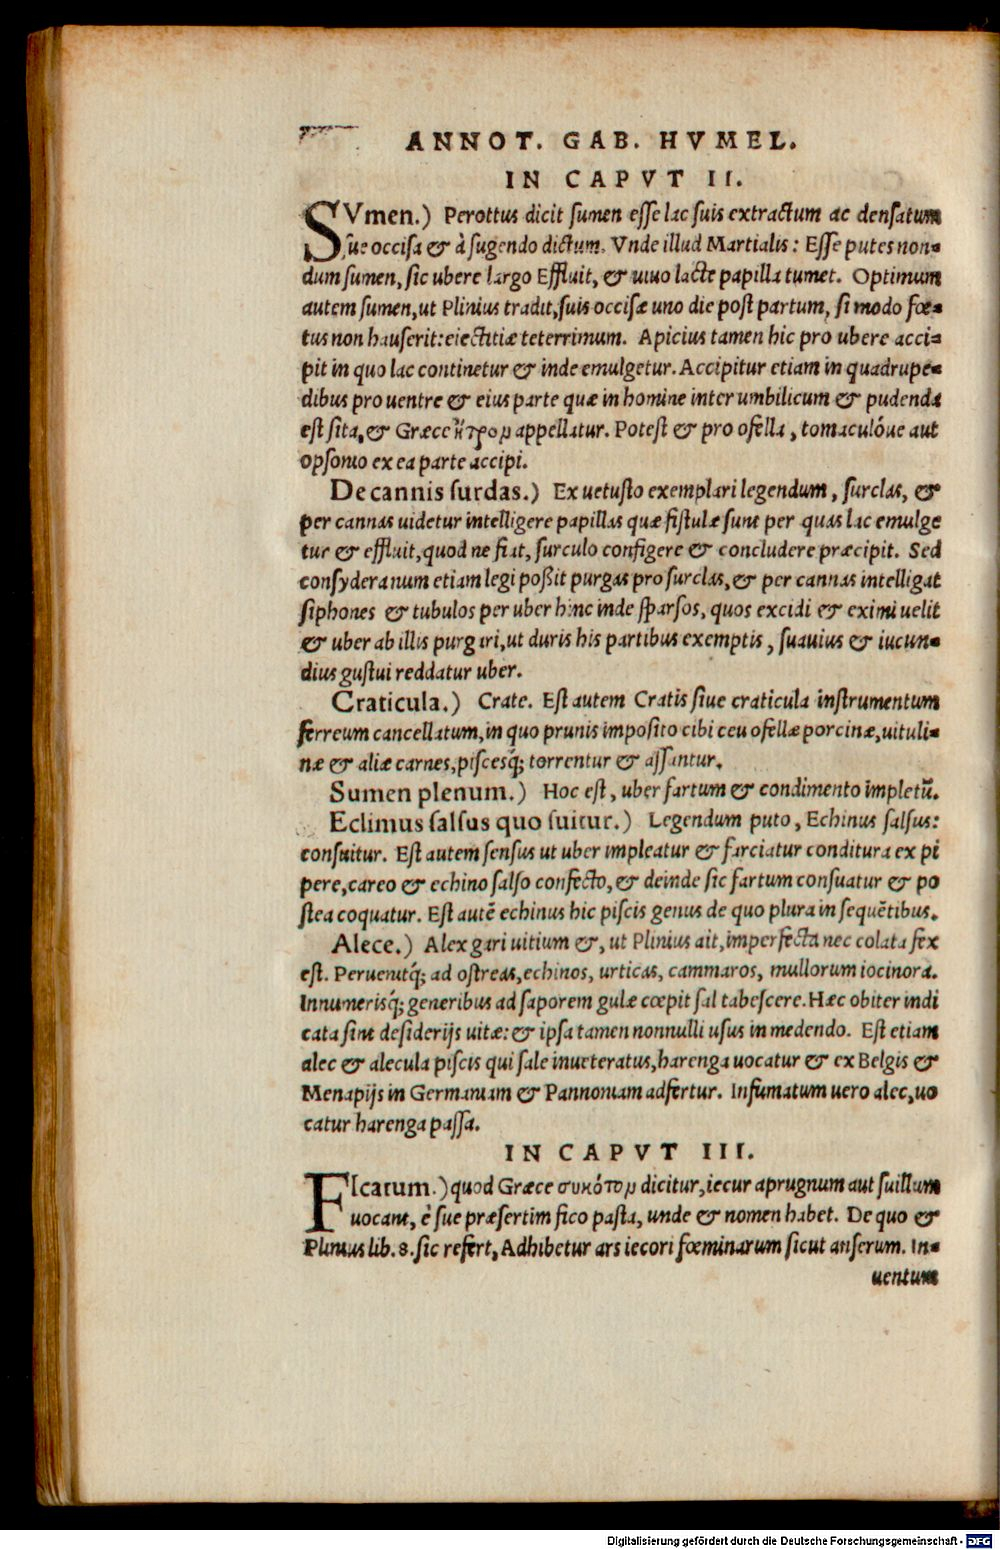 ANNOT. GAB. HVMEL.
IN CAPVT II.
SVmen.) Perottus dicit sumen esse lac suis extractum ac densatum
sue occisa & à sugendo dictum. Vnde illud Martialis: Esse putes non-
dum sumen, sic ubere largo Effluit, & uiuo lacte papilla tumet. Optimum
autem sumen, ut Plinius tradit, suis occisæ uno die post partum, si modo fœ-
tus non hauserit: eiectitiæ teterrimum. Apicius tamen hic pro ubere acci-
pit in quo lac continetur & inde emulgetur. Accipitur etiam in quadrupe-
dibus pro uentre & eius parte quæ in homine inter umbilicum & pudenda
est sita, & Græce ἤτρομ appellatur. Potest & pro ofella, tomaculóue aut
opsonio ex ea parte accipi.
De cannis surdas.) Ex uetusto exemplari legendum, surclas, &
per cannas uidetur intelligere papillas quæ fistulæ sunt per quas lac emulge
tur & effluit, quod ne fiat, surculo configere & concludere præcipit. Sed
consyderanum etiam legi poßit purgas pro surclas, & per cannas intelligat
siphones & tubulos per uber hinc inde sparsos, quos excidi & eximi uelit
& uber ab illis purgari, ut duris his partibus exemptis, suauius & iucun-
dius gustui reddatur uber.
Craticula.) Crate. Est autem Cratis siue craticula instrumentum
ferreum cancellatum, in quo prunis imposito cibi ceu ofellæ porcinæ, uituli-
næ & aliæ carnes, piscesq́; torrentur & assantur.
Sumen plenum.) Hoc est, uber fartum & condimento impletū.
Eclimus salsus quo suitur.) Legendum puto, Echinus salsus:
consuitur. Est autem sensus ut uber impleatur & farciatur conditura ex pi
pere, careo & echino salso confecto, & deinde sic fartum consuatur & po
stea coquatur. Est autē echinus hic piscis genus de quo plura in sequētibus.
Alece.) Alex gari uitium &, ut Plinius ait, imperfecta nec colata fex
est. Peruenitq́; ad ostreas, echinos, urticas, cammaros, mullorum iocinora.
Innumerisq́; generibus ad saporem gulæ cœpit sal tabescere. Hæc obiter indi
cata sint desiderijs uitæ: & ipsa tamen nonnulli usus in medendo. Est etiam
alec & alecula piscis qui sale inueteratus, harenga uocatur & ex Belgis &
Menapijs in Germaniam & Pannoniam adfertur. Infumatum uero alec, uo
catur harenga passa.
IN CAPVT III.
FIcatum.) quod Græce συκότομ dicitur, iecur aprugnum aut suillum
uocant, è sue præsertim fico pasta, unde & nomen habet. De quo &
Plinius lib. 8. sic refert, Adhibetur ars iecori fœminarum sicut anserum. In-
uentum
Digitalisierung gefördert durch die Deutsche Forschungsgemeinschaft - DFG